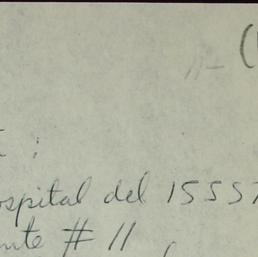 (
:
ospital del 1555
nte # 11